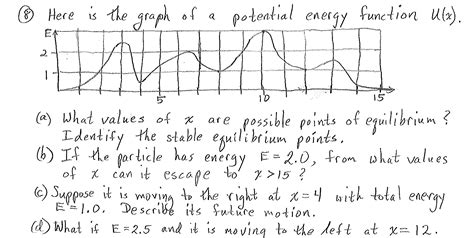 ⑧ Here is the graph of a potential energy function U(x).
E
2
1
5 10 15
(a) What values of x are possible points of equilibrium?
Identify the stable equilibrium points.
(b) If the particle has energy E = 2.0, from what values
of x can it escape to x > 15 ?
(c) Suppose it is moving to the right at x = 4 with total energy
E = 1.0. Describe its future motion.
(d) What if E = 2.5 and it is moving to the left at x = 12.